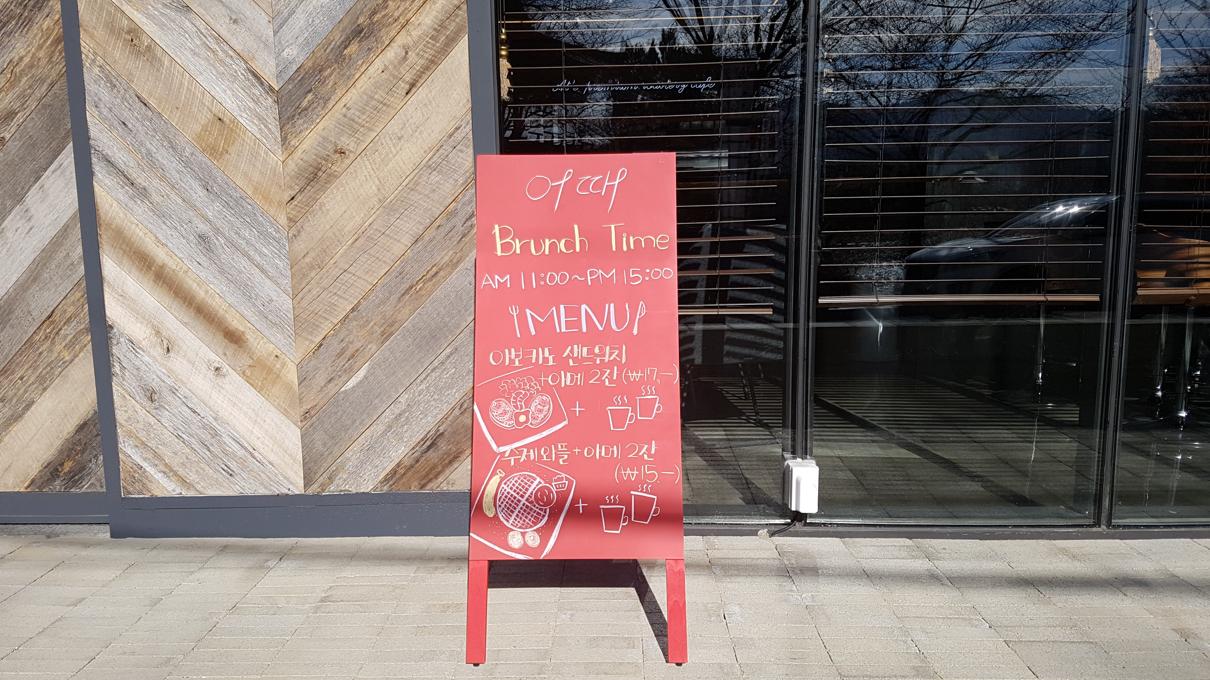 어때
Brunch Time
AM 11:00~PM 15:00
MENU
아보카도 샌드위치
+아메 2잔 (₩17,-)
+
수제와플+아메 2잔
(₩15,-)
+